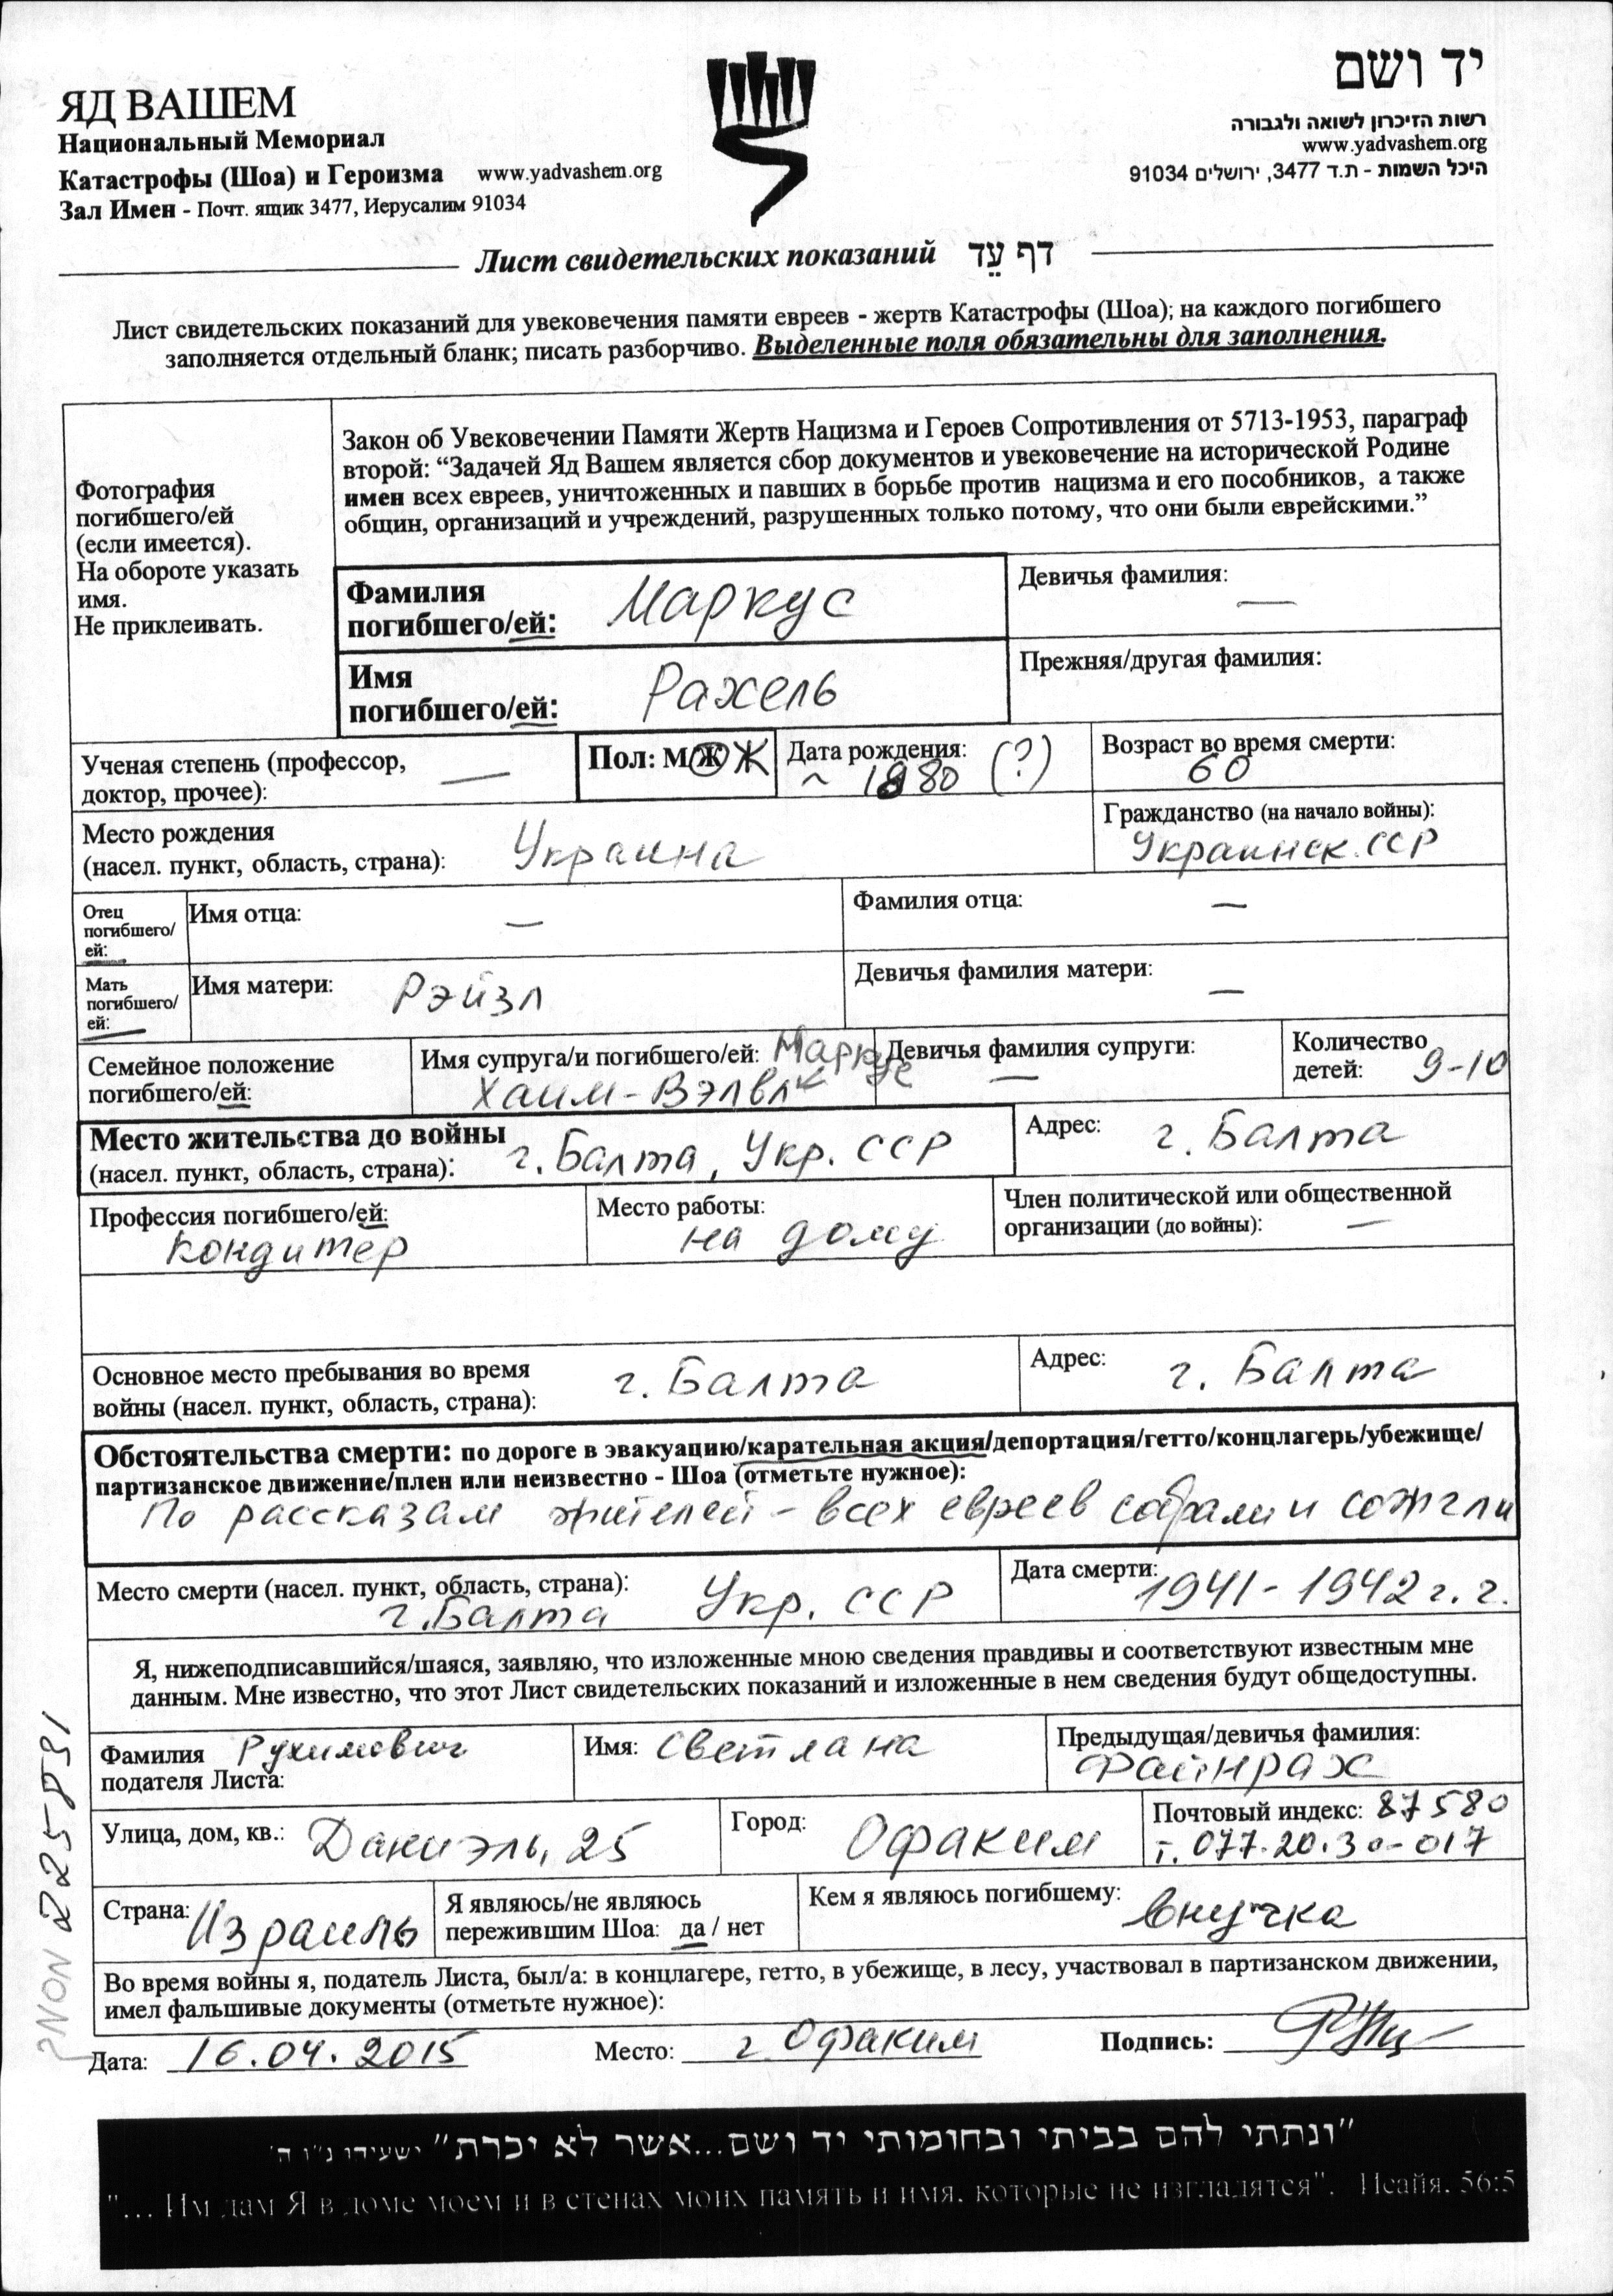 ЯД ВАШЕМ
Национальный Мемориал
Катастрофы (Шоа) и Героизма www.yadvashem.org
Зал Имен - Почт. ящик 3477, Иерусалим 91034
יד ושם
רשות הזיכרון לשואה ולגבורה
www.yadvashem.org
היכל השמות - ת.ד 3477, ירושלים 91034
Лист свидетельских показаний דף עֵד
Лист свидетельских показаний для увековечения памяти евреев - жертв Катастрофы (Шоа); на каждого погибшего
заполняется отдельный бланк; писать разборчиво. Выделенные поля обязательны для заполнения.
Фотография
погибшего/ей
(если имеется).
На обороте указать
имя.
Не приклеивать.
Закон об Увековечении Памяти Жертв Нацизма и Героев Сопротивления от 5713-1953, параграф
второй: “Задачей Яд Вашем является сбор документов и увековечение на исторической Родине
имен всех евреев, уничтоженных и павших в борьбе против нацизма и его пособников, а также
общин, организаций и учреждений, разрушенных только потому, что они были еврейскими.”
Фамилия
погибшего/ей: Маркус
Девичья фамилия: —
Имя
погибшего/ей: Рахель
Прежняя/другая фамилия:
Ученая степень (профессор, —
доктор, прочее):
Пол: М/Ж Ж
Дата рождения:
~ 1880 (?)
Возраст во время смерти:
60
Место рождения
(насел. пункт, область, страна): Украина
Гражданство (на начало войны):
Украинск. ССР
Отец
погибшего/
ей:
Имя отца: —
Фамилия отца: —
Мать
погибшего/
ей:
Имя матери: Рэйзл
Девичья фамилия матери: —
Семейное положение
погибшего/ей:
Имя супруга/и погибшего/ей: Маркус
Хаим-Вэлвл
Девичья фамилия супруги:
—
Количество
детей: 9-10
Место жительства до войны
(насел. пункт, область, страна): г. Балта, Укр. ССР
Адрес: г. Балта
Профессия погибшего/ей:
Кондитер
Место работы:
на дому
Член политической или общественной
организации (до войны): —
Основное место пребывания во время
войны (насел. пункт, область, страна): г. Балта
Адрес: г. Балта
Обстоятельства смерти: по дороге в эвакуацию/карательная акция/депортация/гетто/концлагерь/убежище/
партизанское движение/плен или неизвестно - Шоа (отметьте нужное):
По рассказам жителей - всех евреев собрали и сожгли
Место смерти (насел. пункт, область, страна):
г. Балта Укр. ССР
Дата смерти:
1941-1942 г. г.
Я, нижеподписавшийся/шаяся, заявляю, что изложенные мною сведения правдивы и соответствуют известным мне
данным. Мне известно, что этот Лист свидетельских показаний и изложенные в нем сведения будут общедоступны.
Фамилия Рухимович
подателя Листа:
Имя: Светлана
Предыдущая/девичья фамилия:
Файнрах
Улица, дом, кв.: Даниэль, 25
Город: Офаким
Почтовый индекс: 87580
т. 077.20.30-017
Страна: Израиль
Я являюсь/не являюсь
пережившим Шоа: да / нет
Кем я являюсь погибшему: внучка
Во время войны я, податель Листа, был/а: в концлагере, гетто, в убежище, в лесу, участвовал в партизанском движении,
имел фальшивые документы (отметьте нужное):
Дата: 16.04.2015 Место: г. Офаким Подпись:
225831
"ונתתי להם בביתי ובחומותי יד ושם...אשר לא יכרת" ישעיהו נ"ו ה'
"... Им дам Я в доме моем и в стенах моих память и имя. которые не изгладятся". Исайя. 56:5